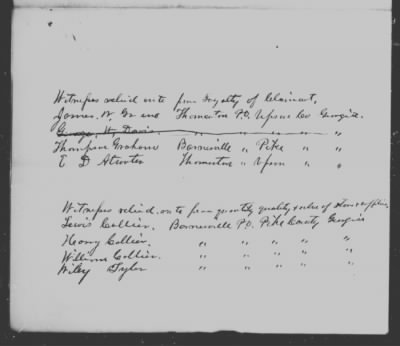 Witnesses relied on to prove loyalty of Claimant,
James W. Greene Thomaston P.O. Upson Co Georgia.
George W. Davis. " " " " "
Thompson Graham Barnesville " Pike " "
E D Atwater Thomaston " Upson " "
Witnesses relied on to prove quantity quality & value of stores & supplies.
Lewis Collier. Barnesville P.O. Pike County Georgia
Henry Collier. " " " " "
William Collier. " " " " "
Wiley Tyler " " " " "